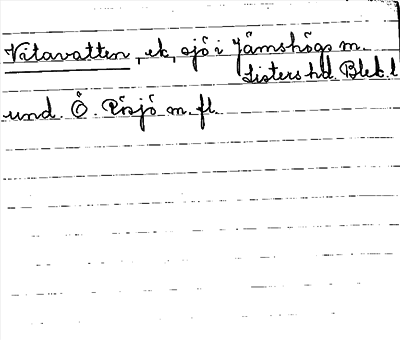 Vitavatten, ek, sjö i Jämshögs m.
Listers hd. Blek. l
und. Ö. Rösjö m. fl.